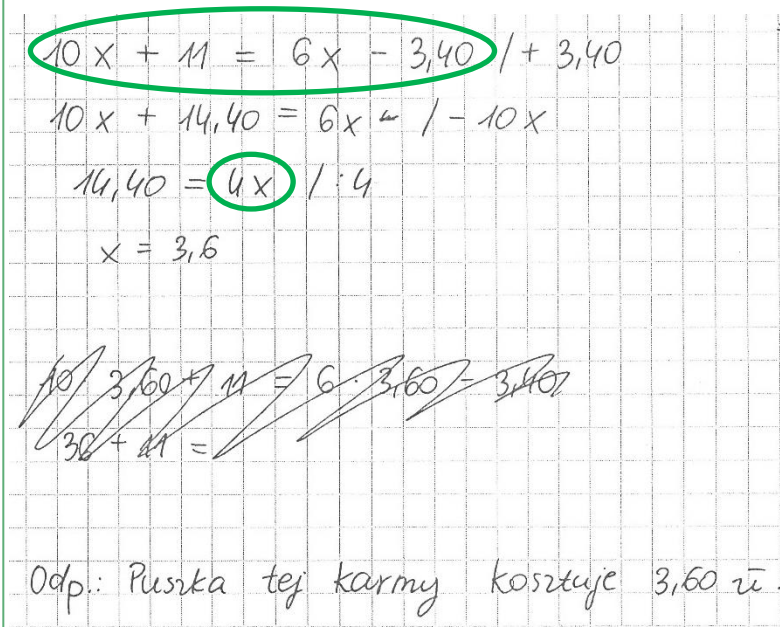 10x + 11 = 6x - 3,40 / + 3,40
10x + 14,40 = 6x - / - 10x
14,40 = 4x / : 4
x = 3,6
10 3,60 + 11 = 6 · 3,60 - 3,40
36 + 11 =
Odp.: Puszka tej karmy kosztuje 3,60 zł.